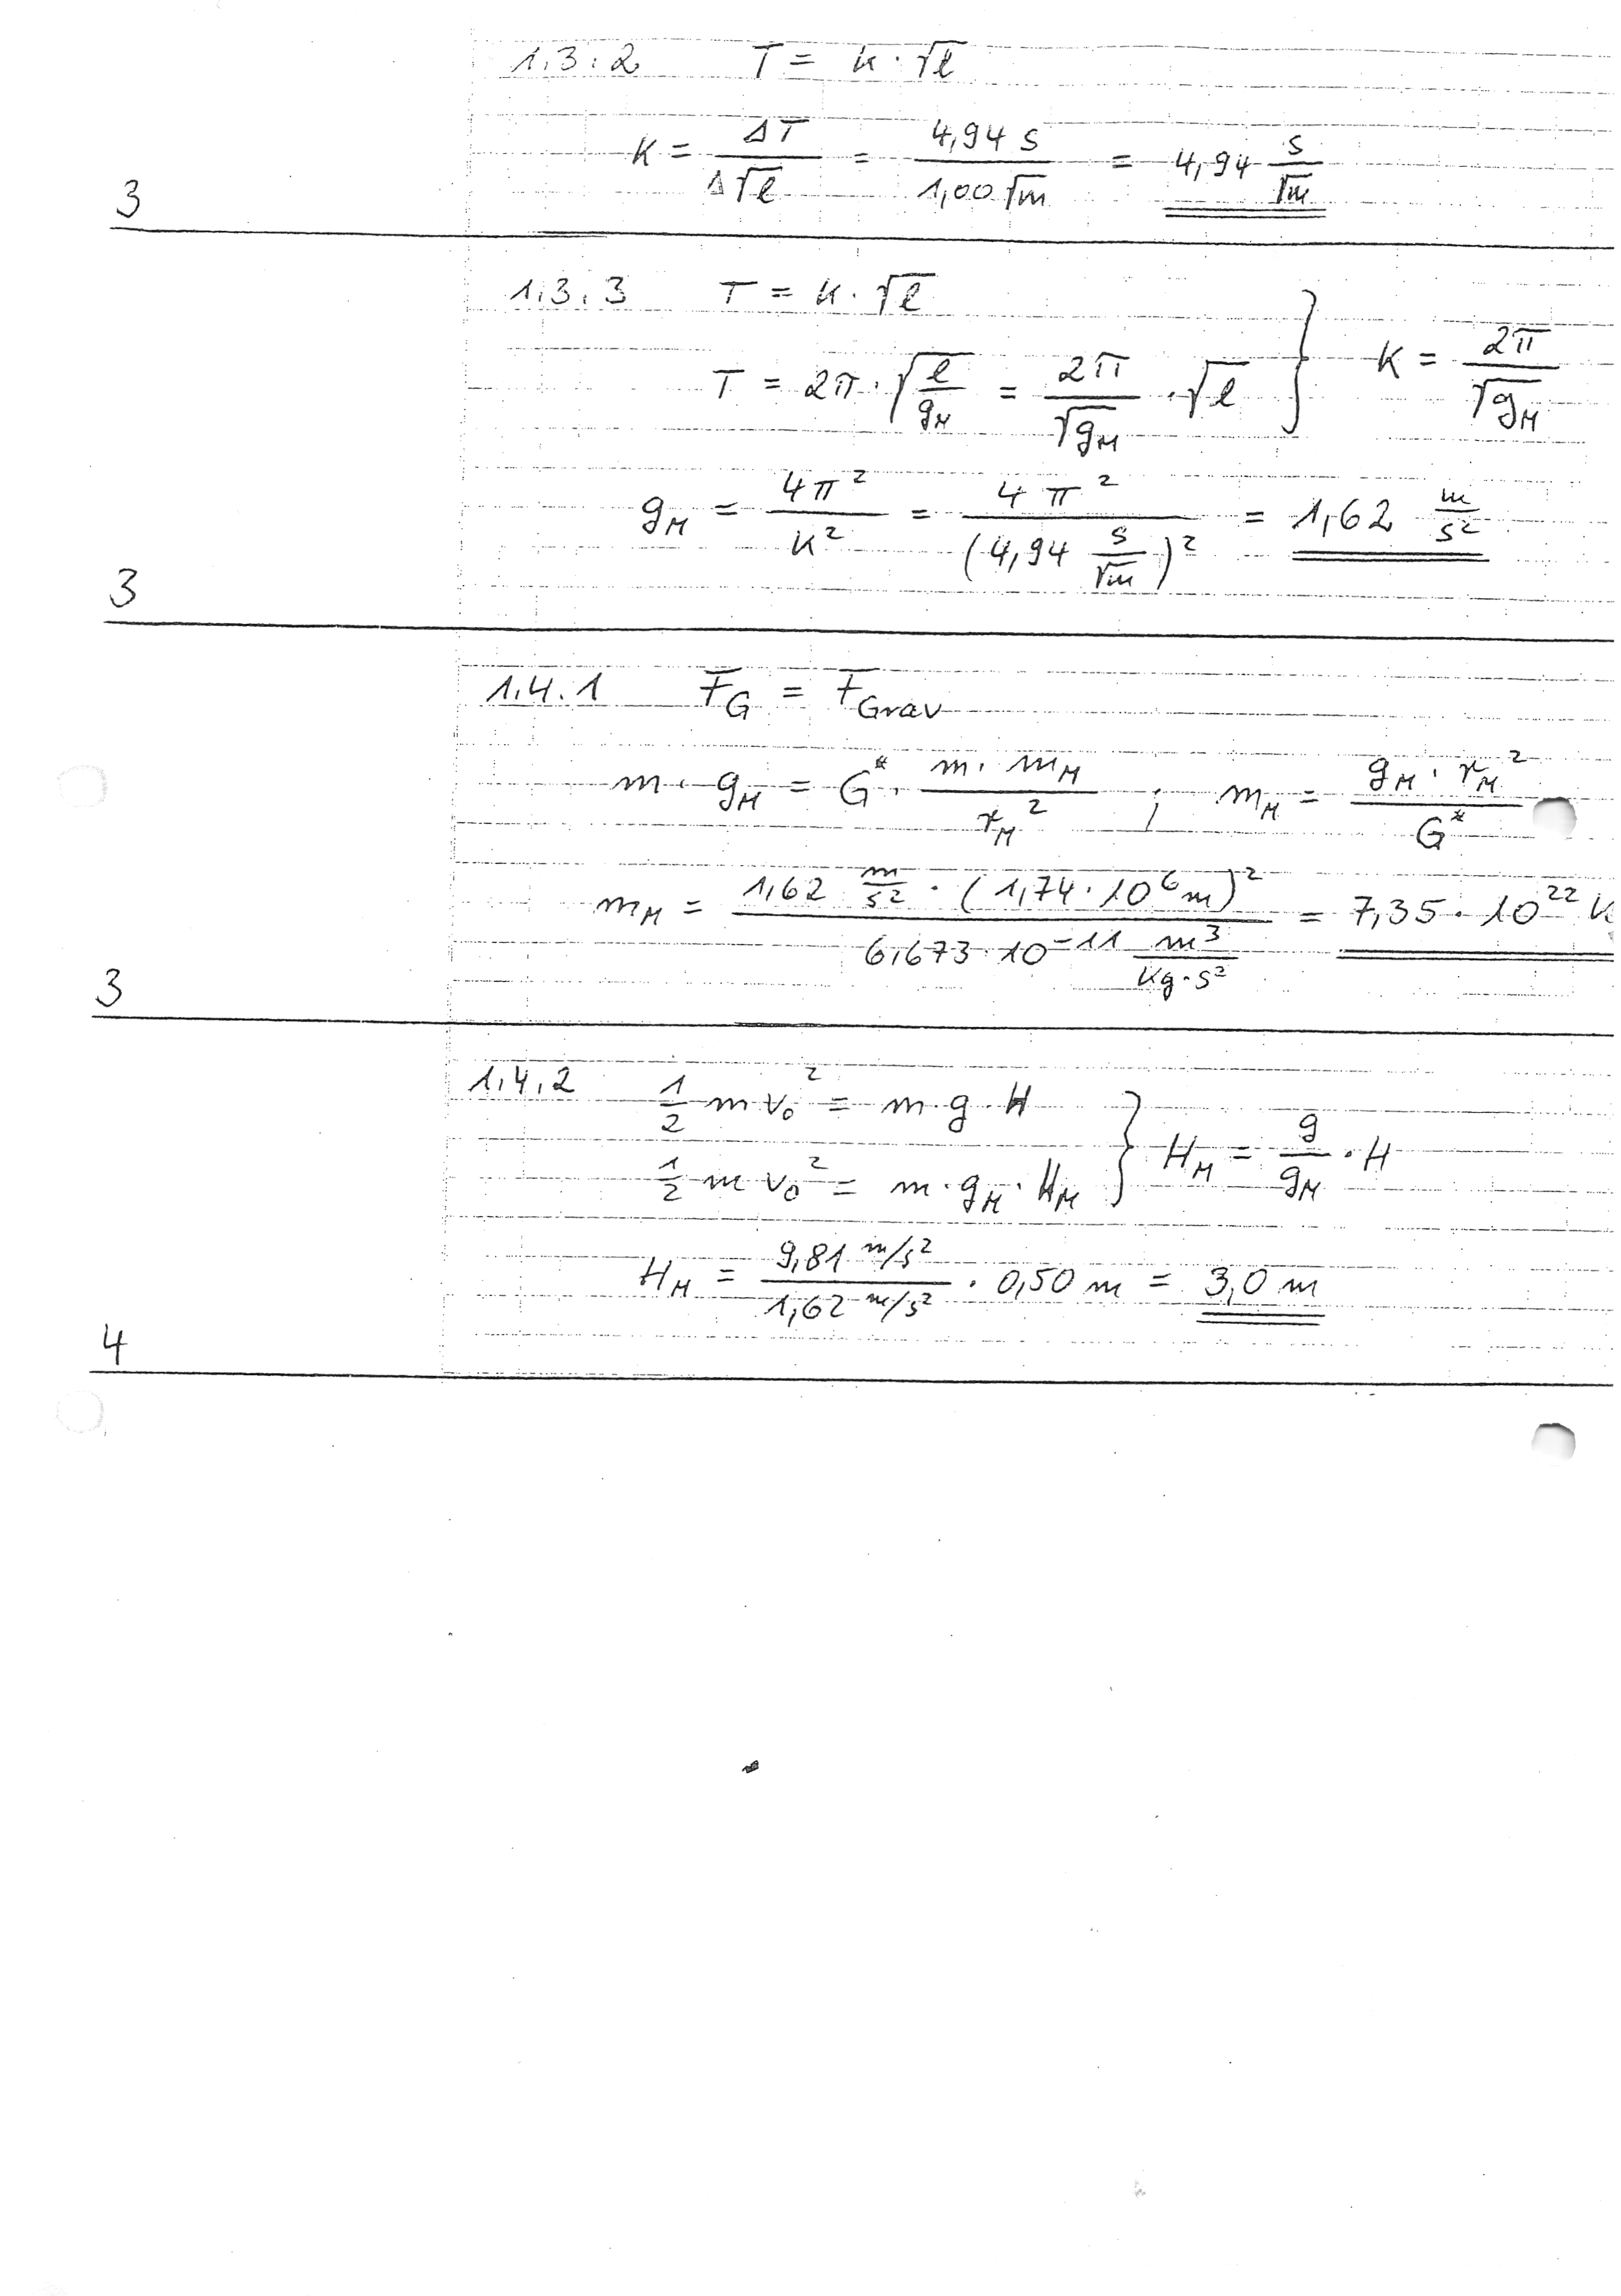 1.3.2 T = k · √l
k = ΔT / Δ√l = 4,94 s / 1,00 √m = 4,94 s/√m
3
1.3.3 T = k · √l
T = 2π · √(l/g_M) = 2π/√g_M · √l } k = 2π/√g_M
g_M = 4π² / k² = 4π² / (4,94 s/√m)² = 1,62 m/s²
3
1.4.1 F_G = F_Grav
m · g_M = G* · m · m_M / r_M² ; m_M = g_M · r_M² / G*
m_M = 1,62 m/s² · (1,74 · 10⁶ m)² / 6,673 · 10⁻¹¹ m³/kg·s² = 7,35 · 10²²
3
1.4.2 1/2 m v₀² = m · g · H
1/2 m v₀² = m · g_M · H_M } H_M = g/g_M · H
H_M = 9,81 m/s² / 1,62 m/s² · 0,50 m = 3,0 m
4